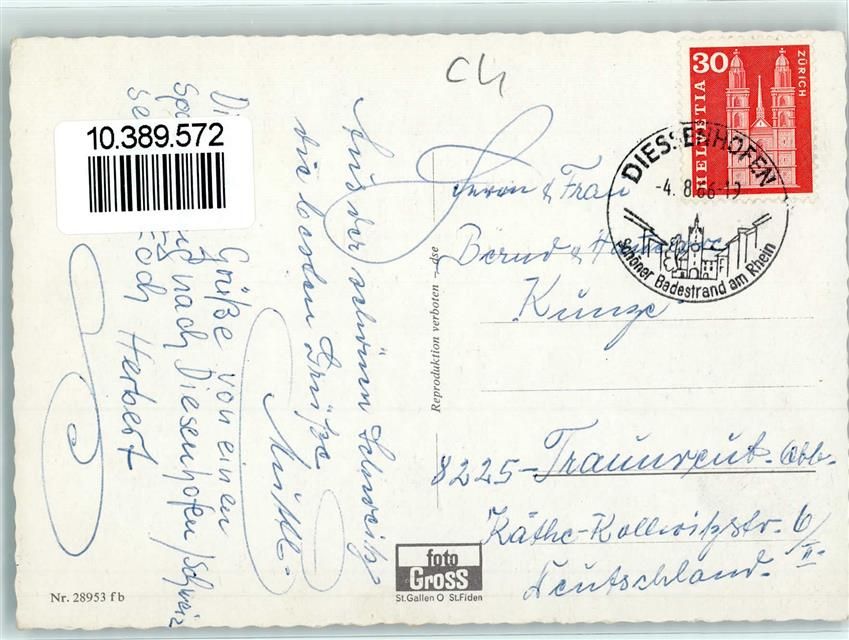 CH
30
HELVETIA
ZÜRICH
DIESSENHOFEN
-4. 8.66-19
Schöner Badestrand am Rhein
10.389.572
Aus der schönen Schweiz
die besten Grüße
Grüße von einem
nach Diesenhofen/Schweiz
Euch Herbert
Herrn & Frau
Bernd &
Kunze
8225-Traunreut-Obb.
Käthe-Kollwitzstr. 6/II.
Deutschland.
Reproduktion verboten
foto
Gross
St.Gallen O St.Fiden
Nr. 28953 f b